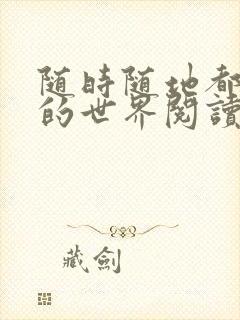 随時随地都
的世界閱讀
藏劍